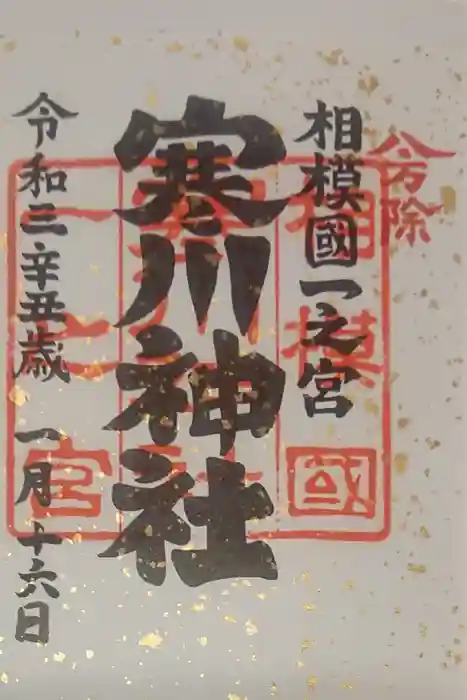 八方除
相模國一之宮
寒川神社
令和三辛丑歳 一月十六日
相模國
一之宮